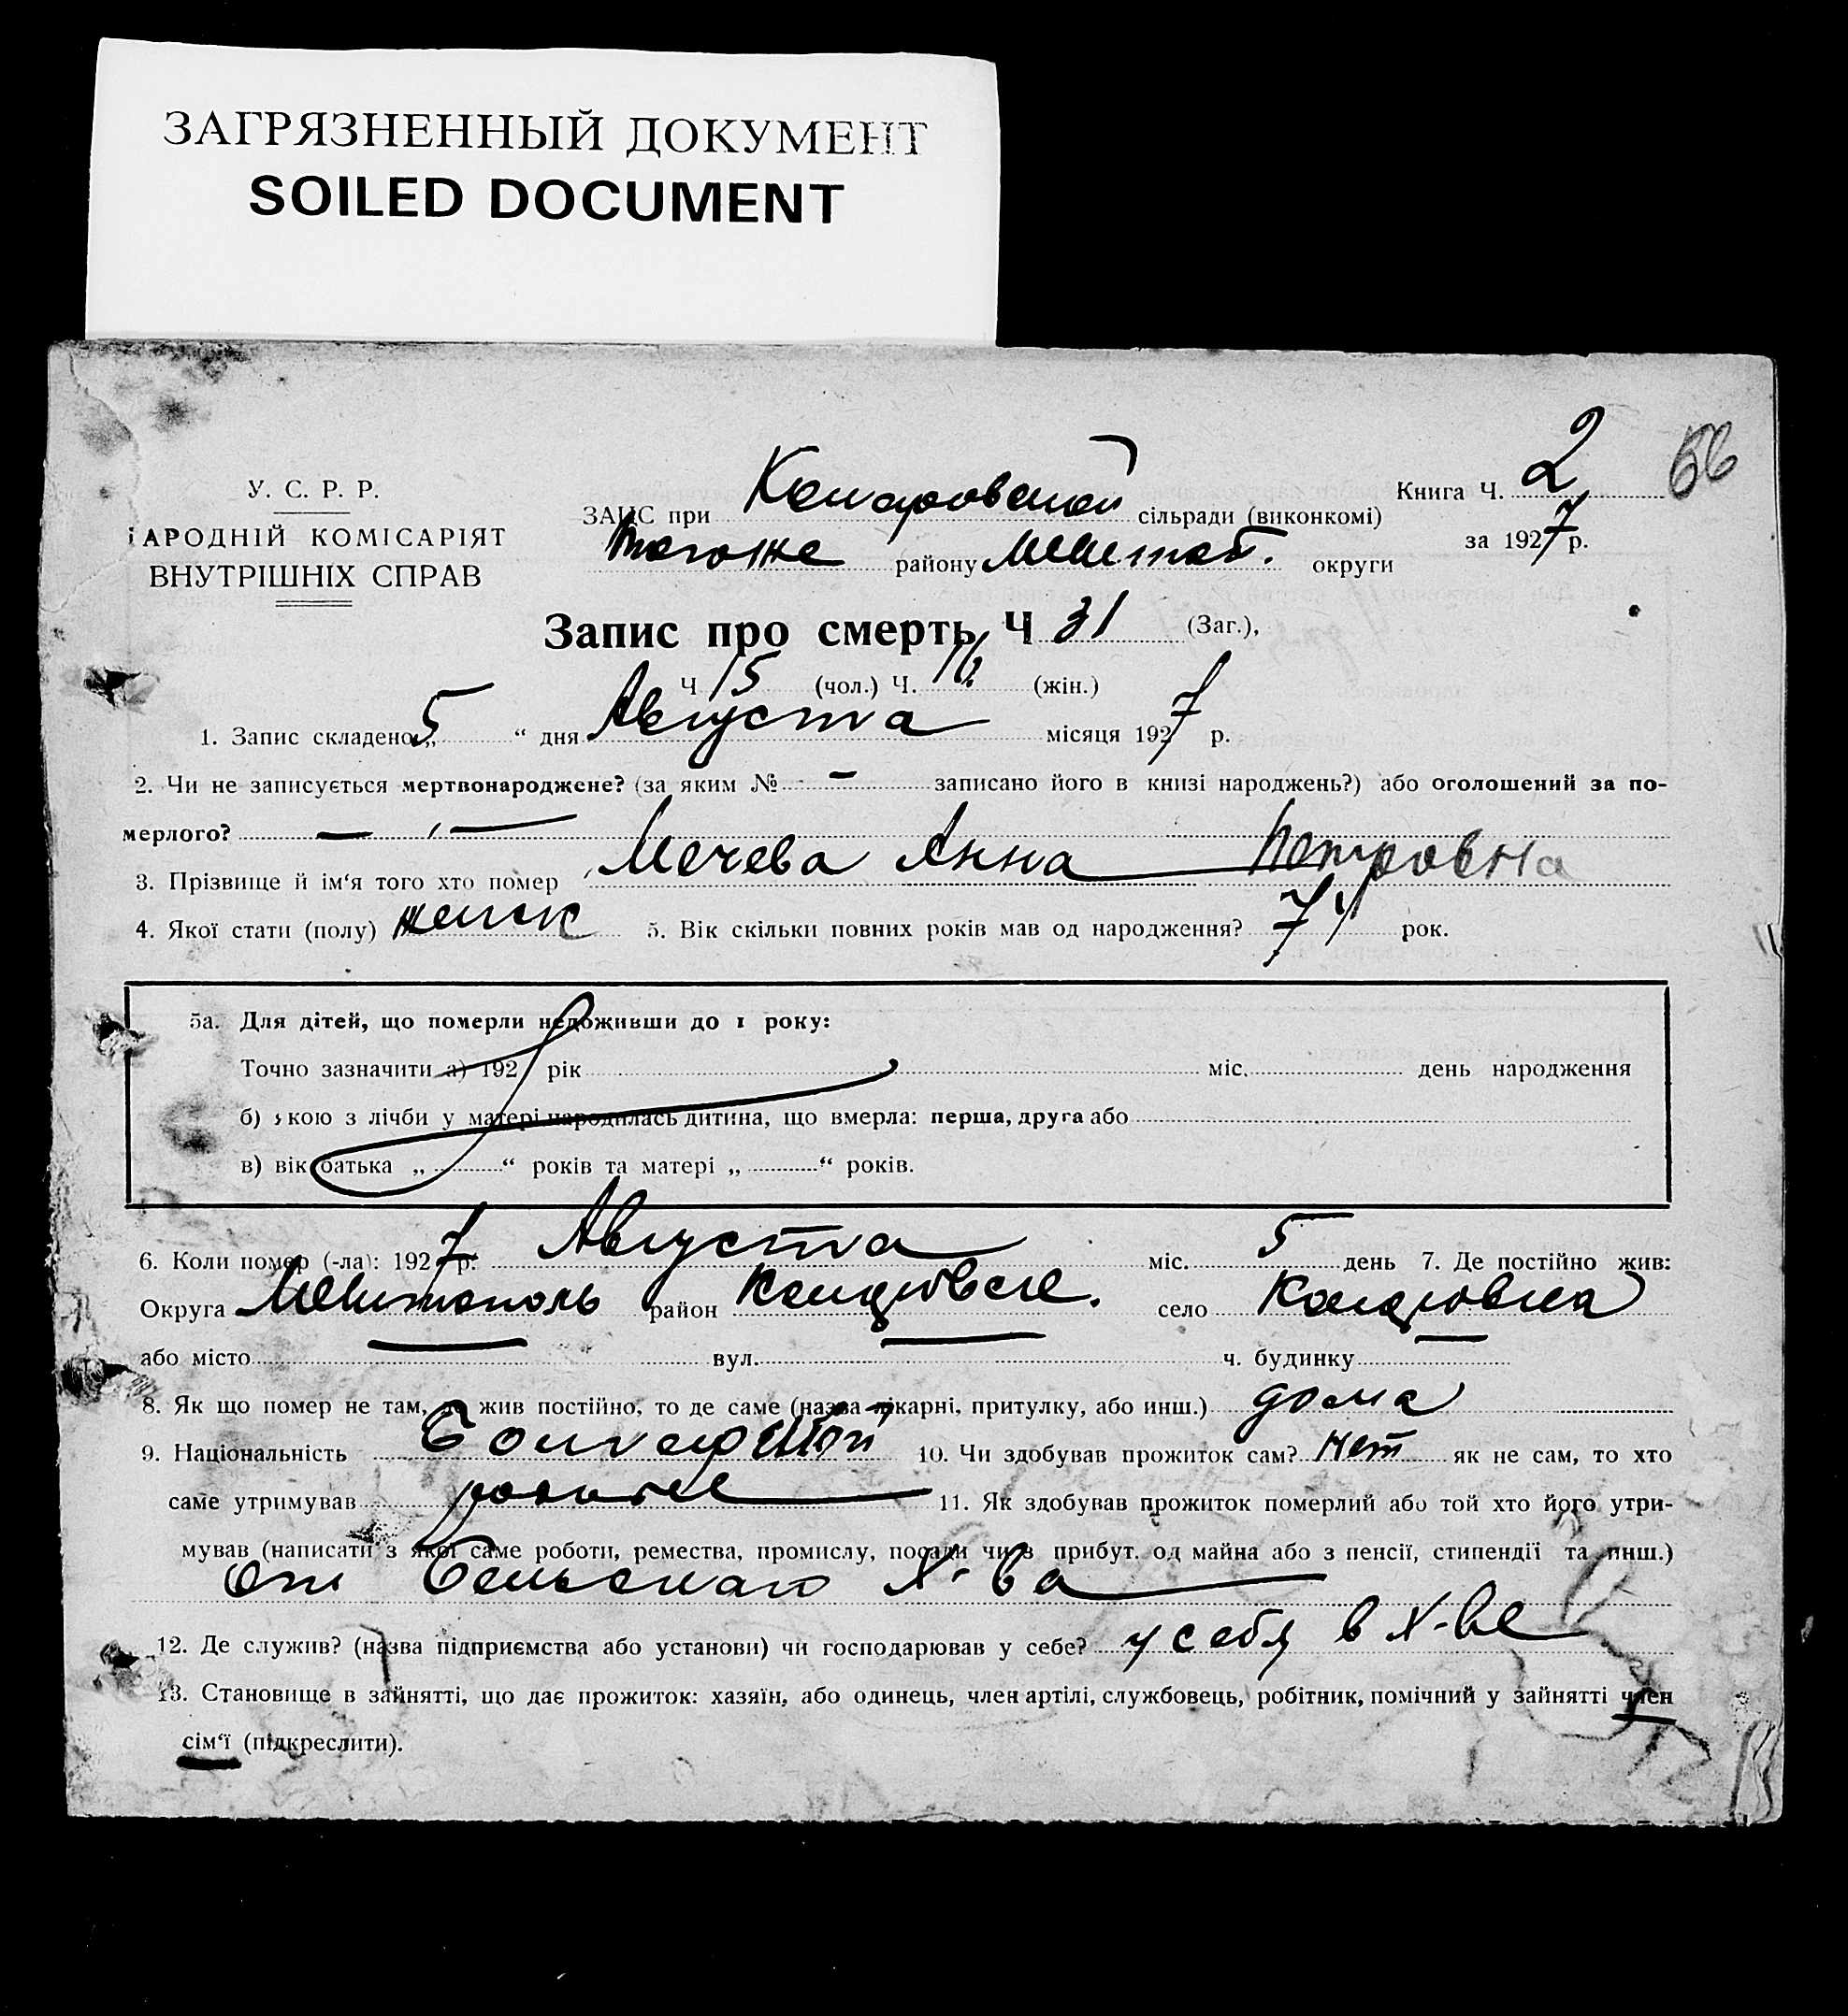 ЗАГРЯЗНЕННЫЙ ДОКУМЕНТ
SOILED DOCUMENT
Книга Ч. 2 66
У. С. Р. Р.
ЗАГС при сільради (виконкомі)
за 1927 р.
АРОДНІЙ КОМІСАРІЯТ
тогоже району Мелитоб. округи
ВНУТРІШНІХ СПРАВ
Запис про смерть Ч 31 (Заг.),
Ч 15 (чол.) Ч. 16 (жін.)
1. Запис складено „ 5 “ дня Августа місяця 1927 р.
2. Чи не записується мертвонароджене? (за яким № - записано його в книзі народжень?) або оголошений за по-
мерлого?
3. Прізвище й ім‘я того хто помер Мечева Анна Петровна
4. Якої стати (полу) женск 5. Вік скільки повних років мав од народження? 74 рок.
5а. Для дітей, що померли недоживши до 1 року:
Точно зазначити а) 192 рік міс. день народження
б) якою з лічби у матері народилась дитина, що вмерла: перша, друга або
в) вік батька „ “ років та матері „ “ років.
6. Коли помер (-ла): 1927 р. Августа міс. 5 день 7. Де постійно жив:
Округа Мелитополь район село
або місто вул. ч. будинку
8. Як що помер не там, де жив постійно, то де саме (назва лікарні, притулку, або инш.) дома
9. Національність 10. Чи здобував прожиток сам? нет як не сам, то хто
саме утримував 11. Як здобував прожиток померлий або той хто його утри-
мував (написати з якої саме роботи, ремества, промислу, посади чи з прибут. од майна або з пенсії, стипендії та инш.)
От Сельскаго Х-ва
12. Де служив? (назва підприємства або установи) чи господарював у себе? у себя в Х-ве
13. Становище в зайнятті, що дає прожиток: хазяїн, або одинець, член артілі, службовець, робітник, помічний у зайнятті член
сім‘ї (підкреслити).